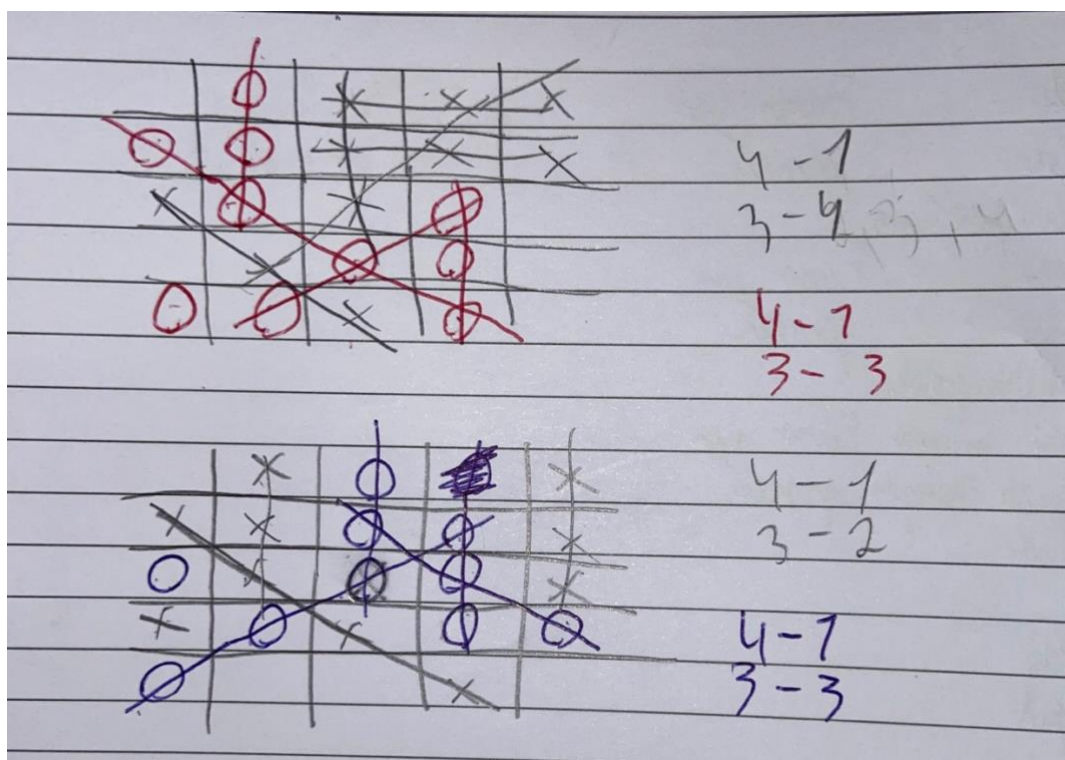 4 - 1
3 - 4
4 - 1
3 - 3
4 - 1
3 - 2
4 - 1
3 - 3